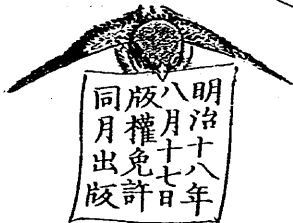 明治十八年
八月十七日
版權免許
同月出版